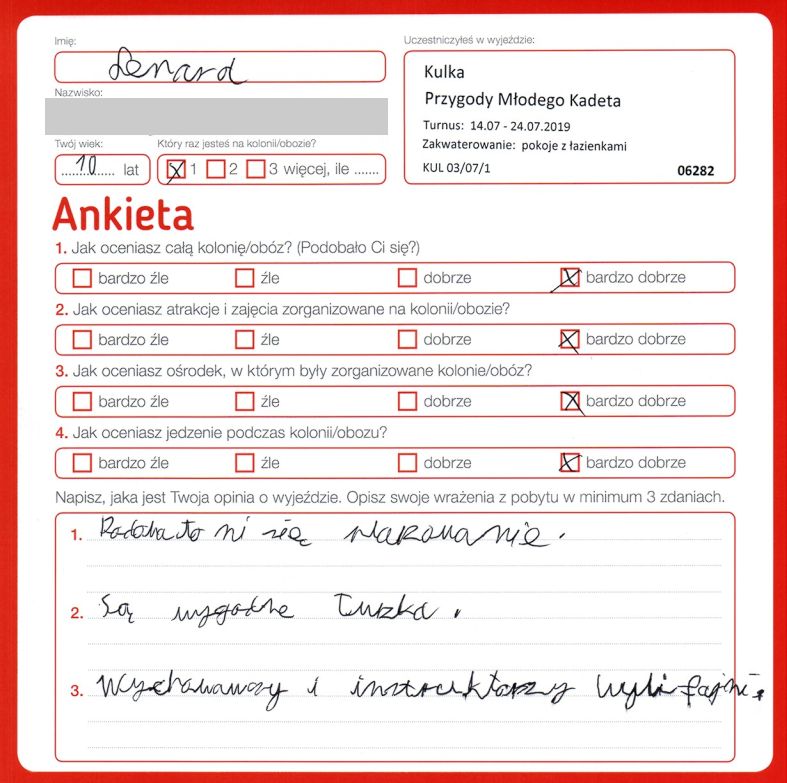 Imię:
Lenard
Nazwisko:
Twój wiek:
10 lat
Który raz jesteś na kolonii/obozie?
1 2 3 więcej, ile .......
Uczestniczyłeś w wyjeździe:
Kulka
Przygody Młodego Kadeta
Turnus: 14.07 - 24.07.2019
Zakwaterowanie: pokoje z łazienkami
KUL 03/07/1 06282
Ankieta
1. Jak oceniasz całą kolonię/obóz? (Podobało Ci się?)
bardzo źle źle dobrze bardzo dobrze
2. Jak oceniasz atrakcje i zajęcia zorganizowane na kolonii/obozie?
bardzo źle źle dobrze bardzo dobrze
3. Jak oceniasz ośrodek, w którym były zorganizowane kolonie/obóz?
bardzo źle źle dobrze bardzo dobrze
4. Jak oceniasz jedzenie podczas kolonii/obozu?
bardzo źle źle dobrze bardzo dobrze
Napisz, jaka jest Twoja opinia o wyjeździe. Opisz swoje wrażenia z pobytu w minimum 3 zdaniach.
1. mi się
2. Są wygodne
3. Wychowawcy i instruktorzy byli fajni.